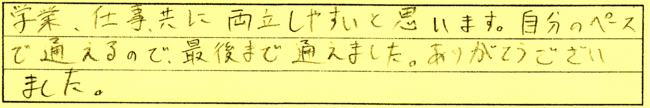 学業、仕事、共に両立しやすいと思います。自分のペース
で通えるので、最後まで通えました。ありがとうござい
ました。